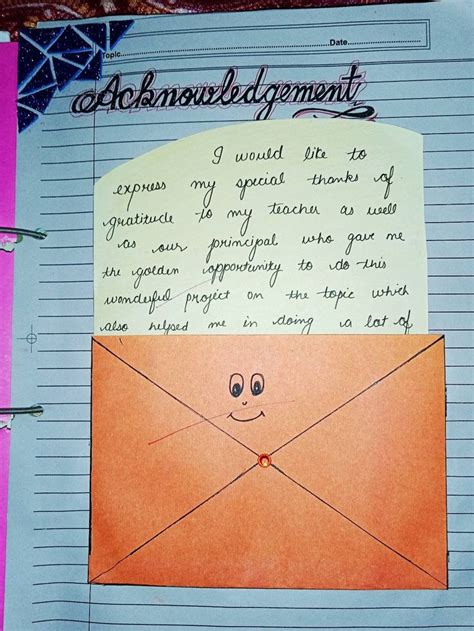 Topic Date
Acknowledgement
I would like to
express my special thanks of
gratitude to my teacher as well
as our principal who gave me
the golden opportunity to do this
wonderful project on the topic which
also helped me in doing a lot of